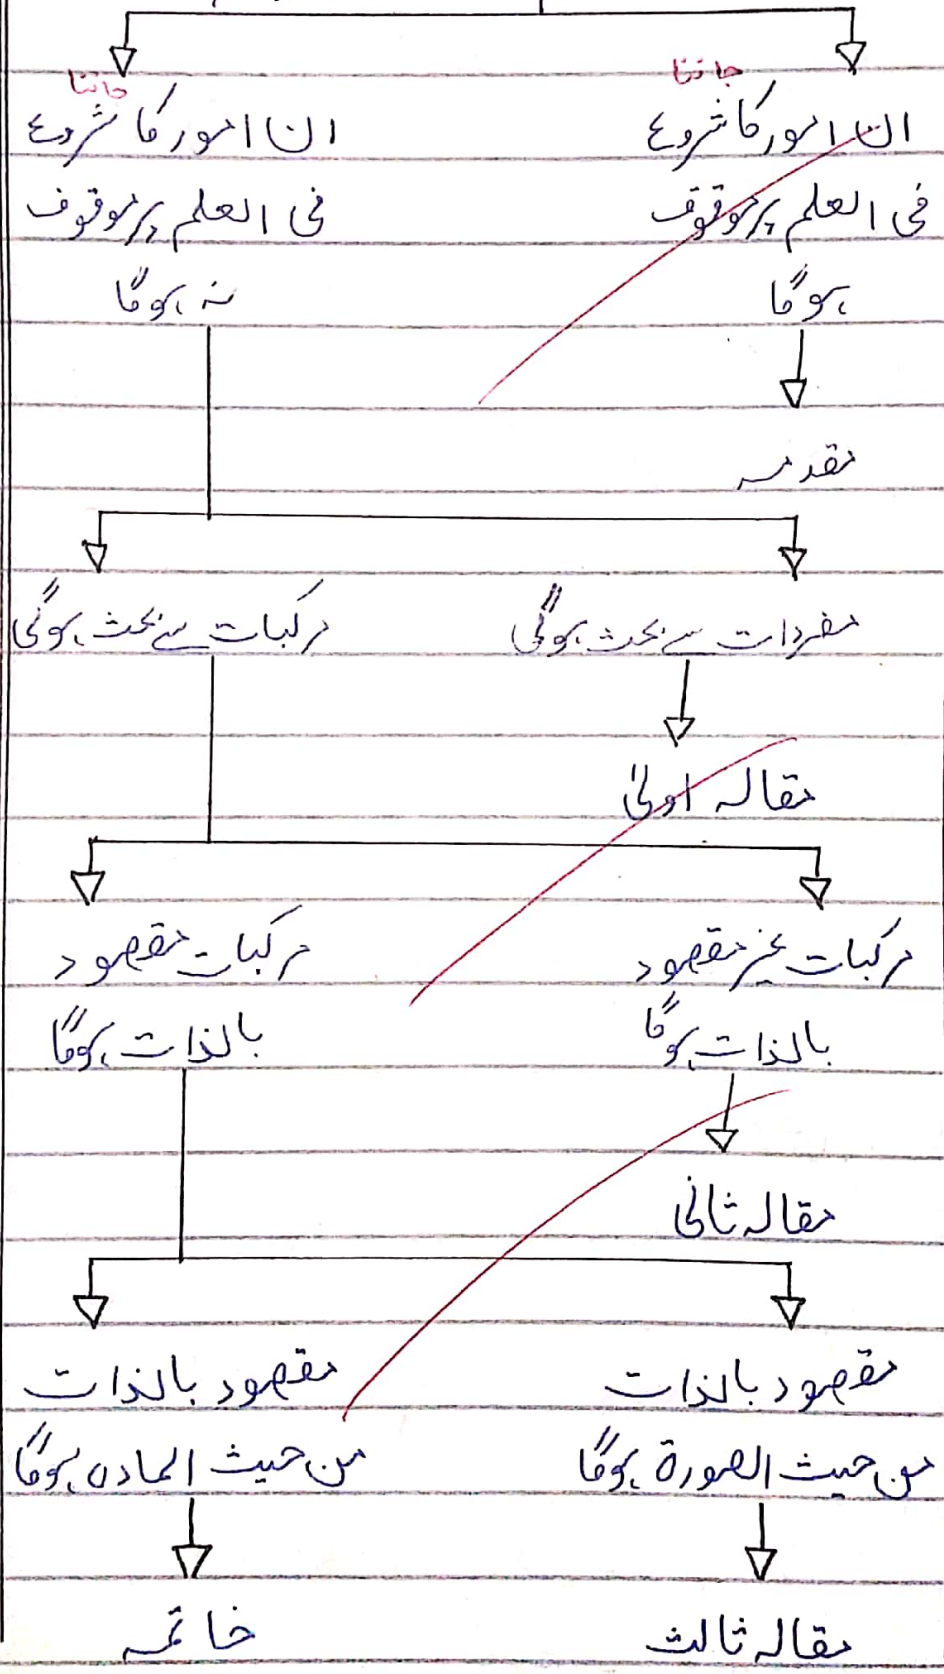 جاننا
ان امور کا شروع
فی العلم پر موقوف
ہوگا
مقدمہ
جاننا
ان امور کا شروع
فی العلم پر موقوف
نہ ہوگا
مفردات سے بحث ہوگی
مقالہ اولیٰ
مرکبات سے بحث ہوگی
مرکبات غیر مقصود
بالذات ہوگا
مقالہ ثانی
مرکبات مقصود
بالذات ہوگا
مقصود بالذات
من حیث الصورة ہوگا
مقالہ ثالث
مقصود بالذات
من حیث المادہ ہوگا
خاتمہ